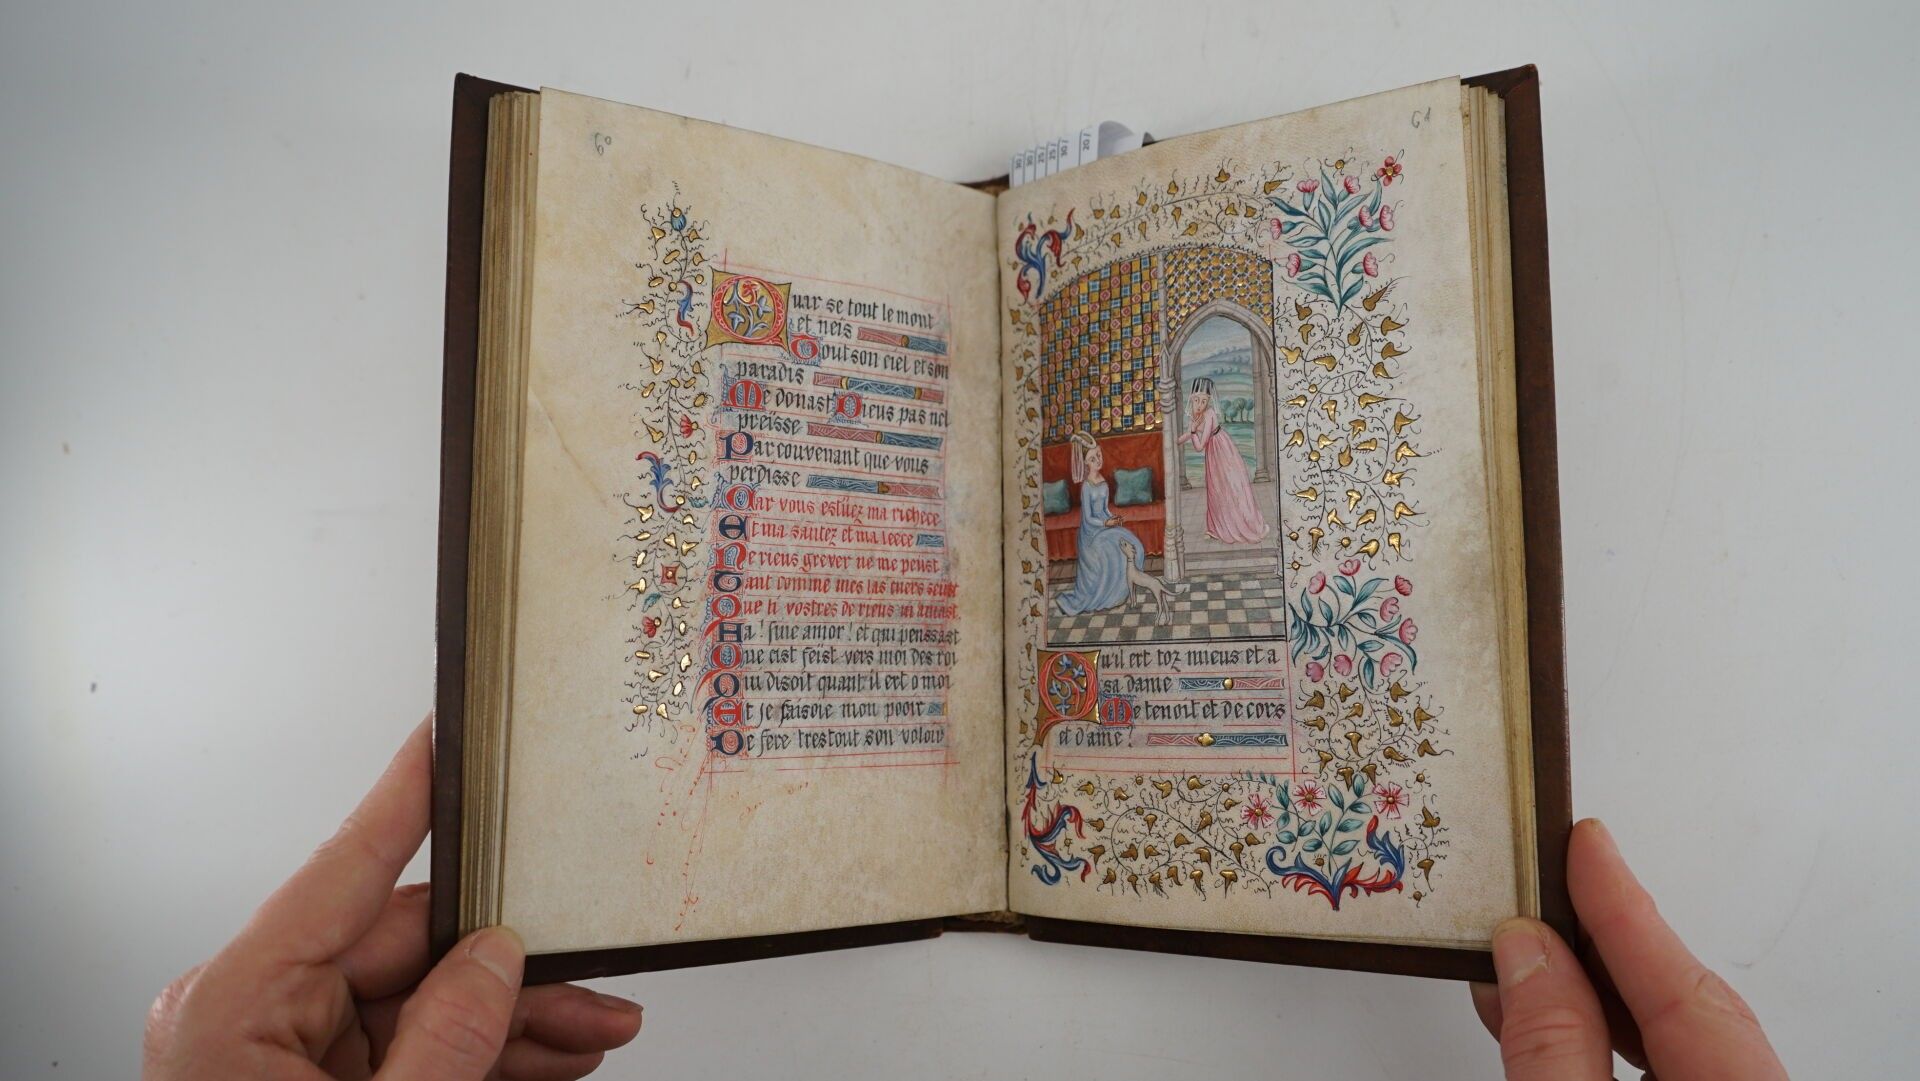 60
Quar se tout le mont
et neis
Tout son ciel et son
paradis
Me donast Dieus pas nel
preïsse
Par couvenant que vous
perdisse
Car vous estiiez ma richece
Et ma santez et ma leece
Ne riens grever ne me peust
Tant comme mes las cuers seust
Que li vostres de riens m'amast
Ha! fine amor! et qui penssast
Que cist feïst vers moi des roi
Qui disoit quant il ert o moi
Et je faisoie mon pooir
De fere trestout son voloir
30/
30/
25/
25/
30/
20/
61
Qu'il ert toz mieus et a
sa dame
Me tenoit et de cors
et d'ame!